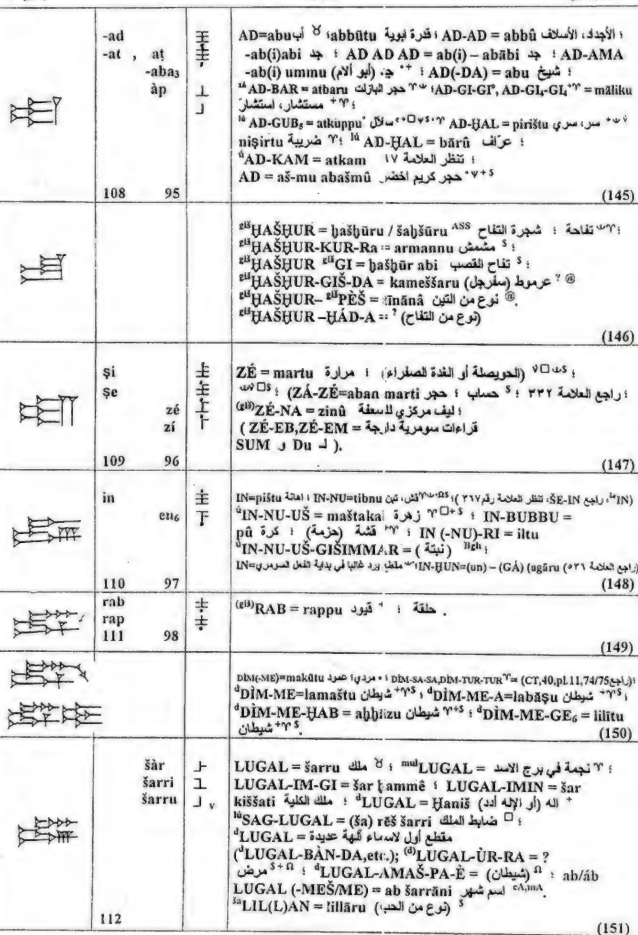 -ad
-at , aṭ
-aba₃
àp
108 95
AD=abu أب ؛ abbūtu قدرة ابوية ؛ AD-AD = abbû الأجداد، الأسلاف ؛
-ab(i)abi جد ؛ AD AD AD = ab(i) – abābi جد ؛ AD-AMA
-ab(i) ummu (أبو ألام) ؛ AD(-DA) = abu شيخ ؛
AD-BAR = atbaru حجر البازلت ؛ AD-GI-GI⁴, AD-GI₄-GI₄ = māliku
مستشار، استشار ؛
lú AD-GUB₅ = atkuppu سلال ؛ AD-ḪAL = pirištu سر، سري
niṣirtu ضريبة ؛ lú AD-ḪAL = bārû عرّاف ؛
ú AD-KAM = atkam تنظر العلامة ١٧ ؛
AD = aš-mu abašmû حجر كريم اخضر
(145)
giš ḪAŠḪUR = ḫašḫūru / šaḫšūru ASS شجرة التفاح ؛ تفاحة ؛
giš ḪAŠḪUR-KUR-Ra = armannu مشمش S ؛
giš ḪAŠḪUR giš GI = ḫašḫūr abi تفاح القصب S ؛
giš ḪAŠḪUR-GIŠ-DA = kameššaru عرموط (سفرجل) ? @
giš ḪAŠḪUR– giš PÈŠ = tīnānâ نوع من التين @.
giš ḪAŠḪUR –ḪÁD-A = ? (نوع من التفاح)
(146)
ṣi
ṣe
zé
zí
109 96
ZÉ = martu مرارة ؛ (الحويصلة أو الغدة الصفراء) ؛
(ZÁ-ZÉ=aban marti حجر ؛ حساب S ؛ راجع العلامة ٣٣٢ ؛
(giš)ZÉ-NA = zinû ليف مركزي للسعفة ؛
( ZÉ-EB,ZÉ-EM = قراءات سومرية دارجة
SUM و Du لـ ).
(147)
in
en₆
110 97
IN=pištu اهانة ؛ IN-NU=tibnu قش، تبن ؛ (ŠE-IN راجع ،IN، تنظر العلامة رقم ٣٦٧)
ú IN-NU-UŠ = maštakal زهرة ؛ IN-BUBBU =
pû كرة ؛ قشة (حزمة) ؛ IN (-NU)-RI = iltu
ú IN-NU-UŠ-GIŠIMMAR = ( نبتة ) ؛
IN= ملطع ورد غالبا في بداية الفعل السومري ؛ IN-ḪUN=(un) – (GÁ) (ugāru (راجع العلامة ٥٣٦)
(148)
rab
rap
111 98
(giš)RAB = rappu حلقة ؛ قيود .
(149)
DÌM(-ME)=makūtu مردي؛ عمود ؛ DÌM-SA-SA,DÌM-TUR-TUR = (CT,40,pl.11,74/75 راجع)؛
d DÌM-ME=lamaštu شيطان ؛ d DÌM-ME-A=labāṣu شيطان ؛
d DÌM-ME-ḪAB = aḫḫāzu شيطان ؛ d DÌM-ME-GE₆ = lilītu
شيطان
(150)
šàr
šarri
šarru
112
LUGAL = šarru ملك ؛ mul LUGAL = نجمة في برج الاسد ؛
LUGAL-IM-GI = šar ḫammê ؛ LUGAL-IMIN = šar
kiššati ملك الكلية ؛ d LUGAL = Ḫaniš اله (أو الإله أدد)
lú SAG-LUGAL = (ša) rēš šarri ضابط الملك ؛
d LUGAL = مقطع أول لاسماء آلهة عديدة
(d LUGAL-BÀN-DA,etc.); (d)LUGAL-ÙR-RA = ?
مرض ؛ d LUGAL-AMAŠ-PA-È = (شيطان) ؛ ab/áb
LUGAL (-MEŠ/ME) = ab šarrāni اسم شهر
še LIL(L)AN = lillāru (نوع من الحب) S
(151)